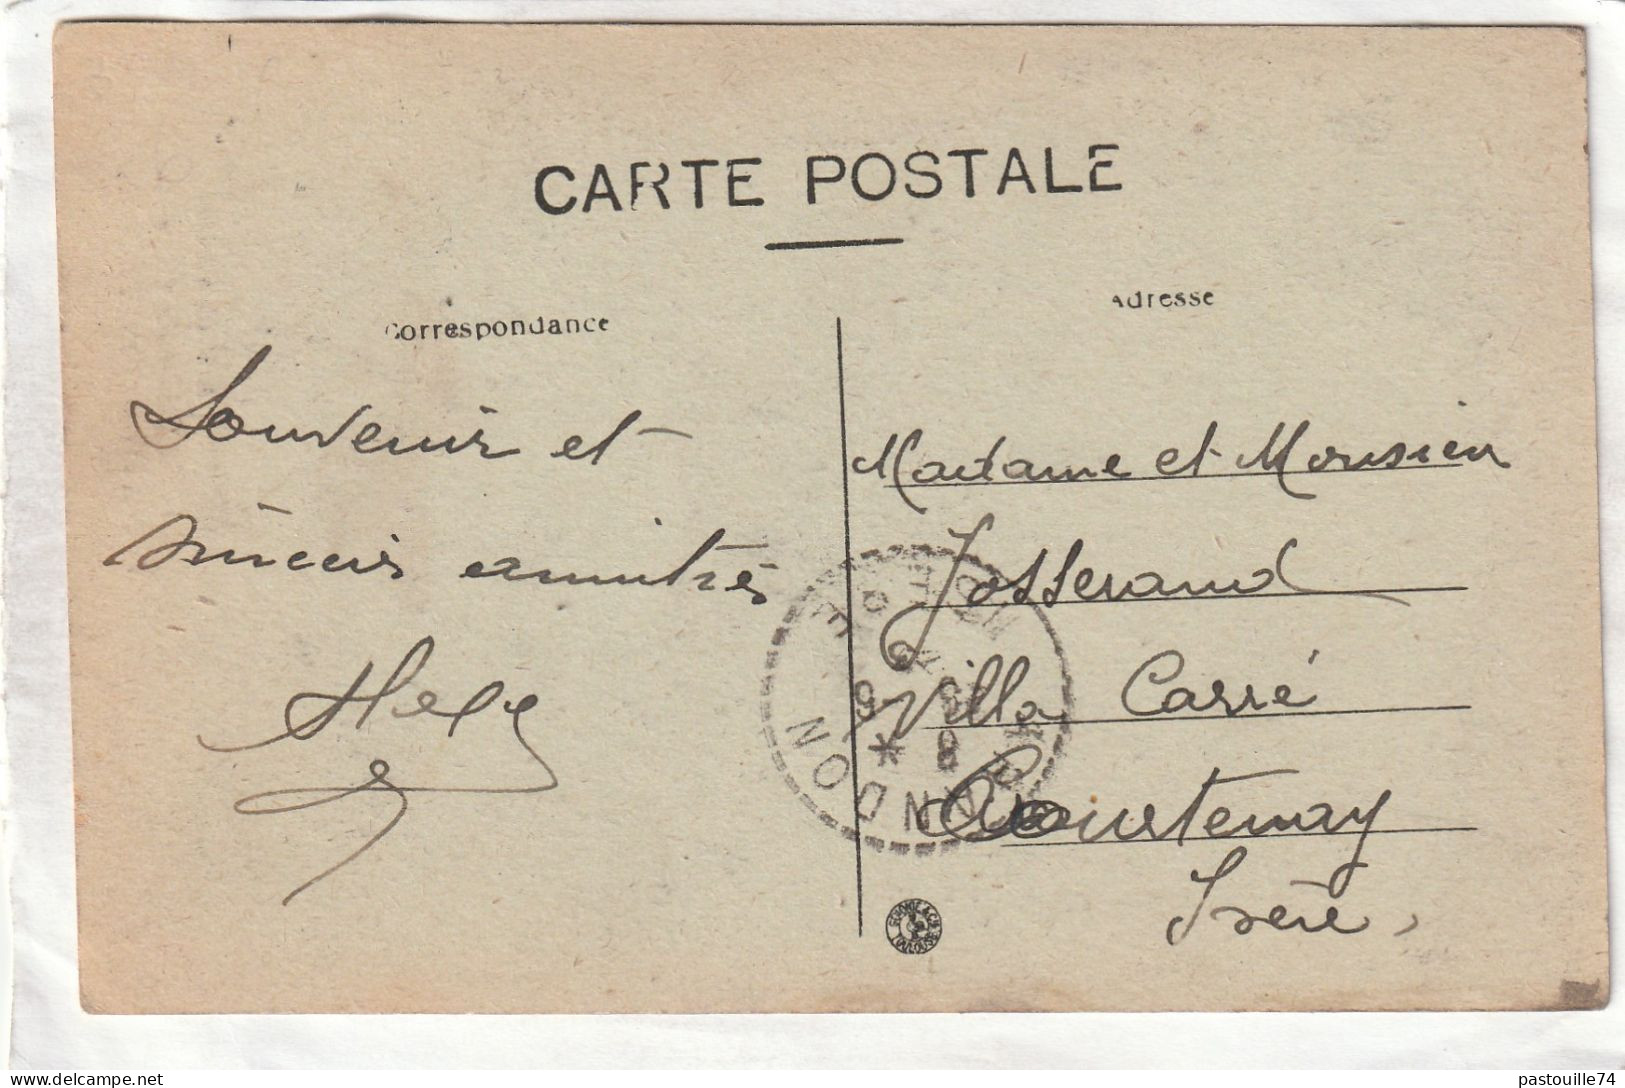 CARTE POSTALE
Correspondance
Adresse
Souvenir et
sincères amitiés
Madame et Monsieur
Josserand
Villa Carré
Courtenay
Isère
delcampe.net
pastouille74